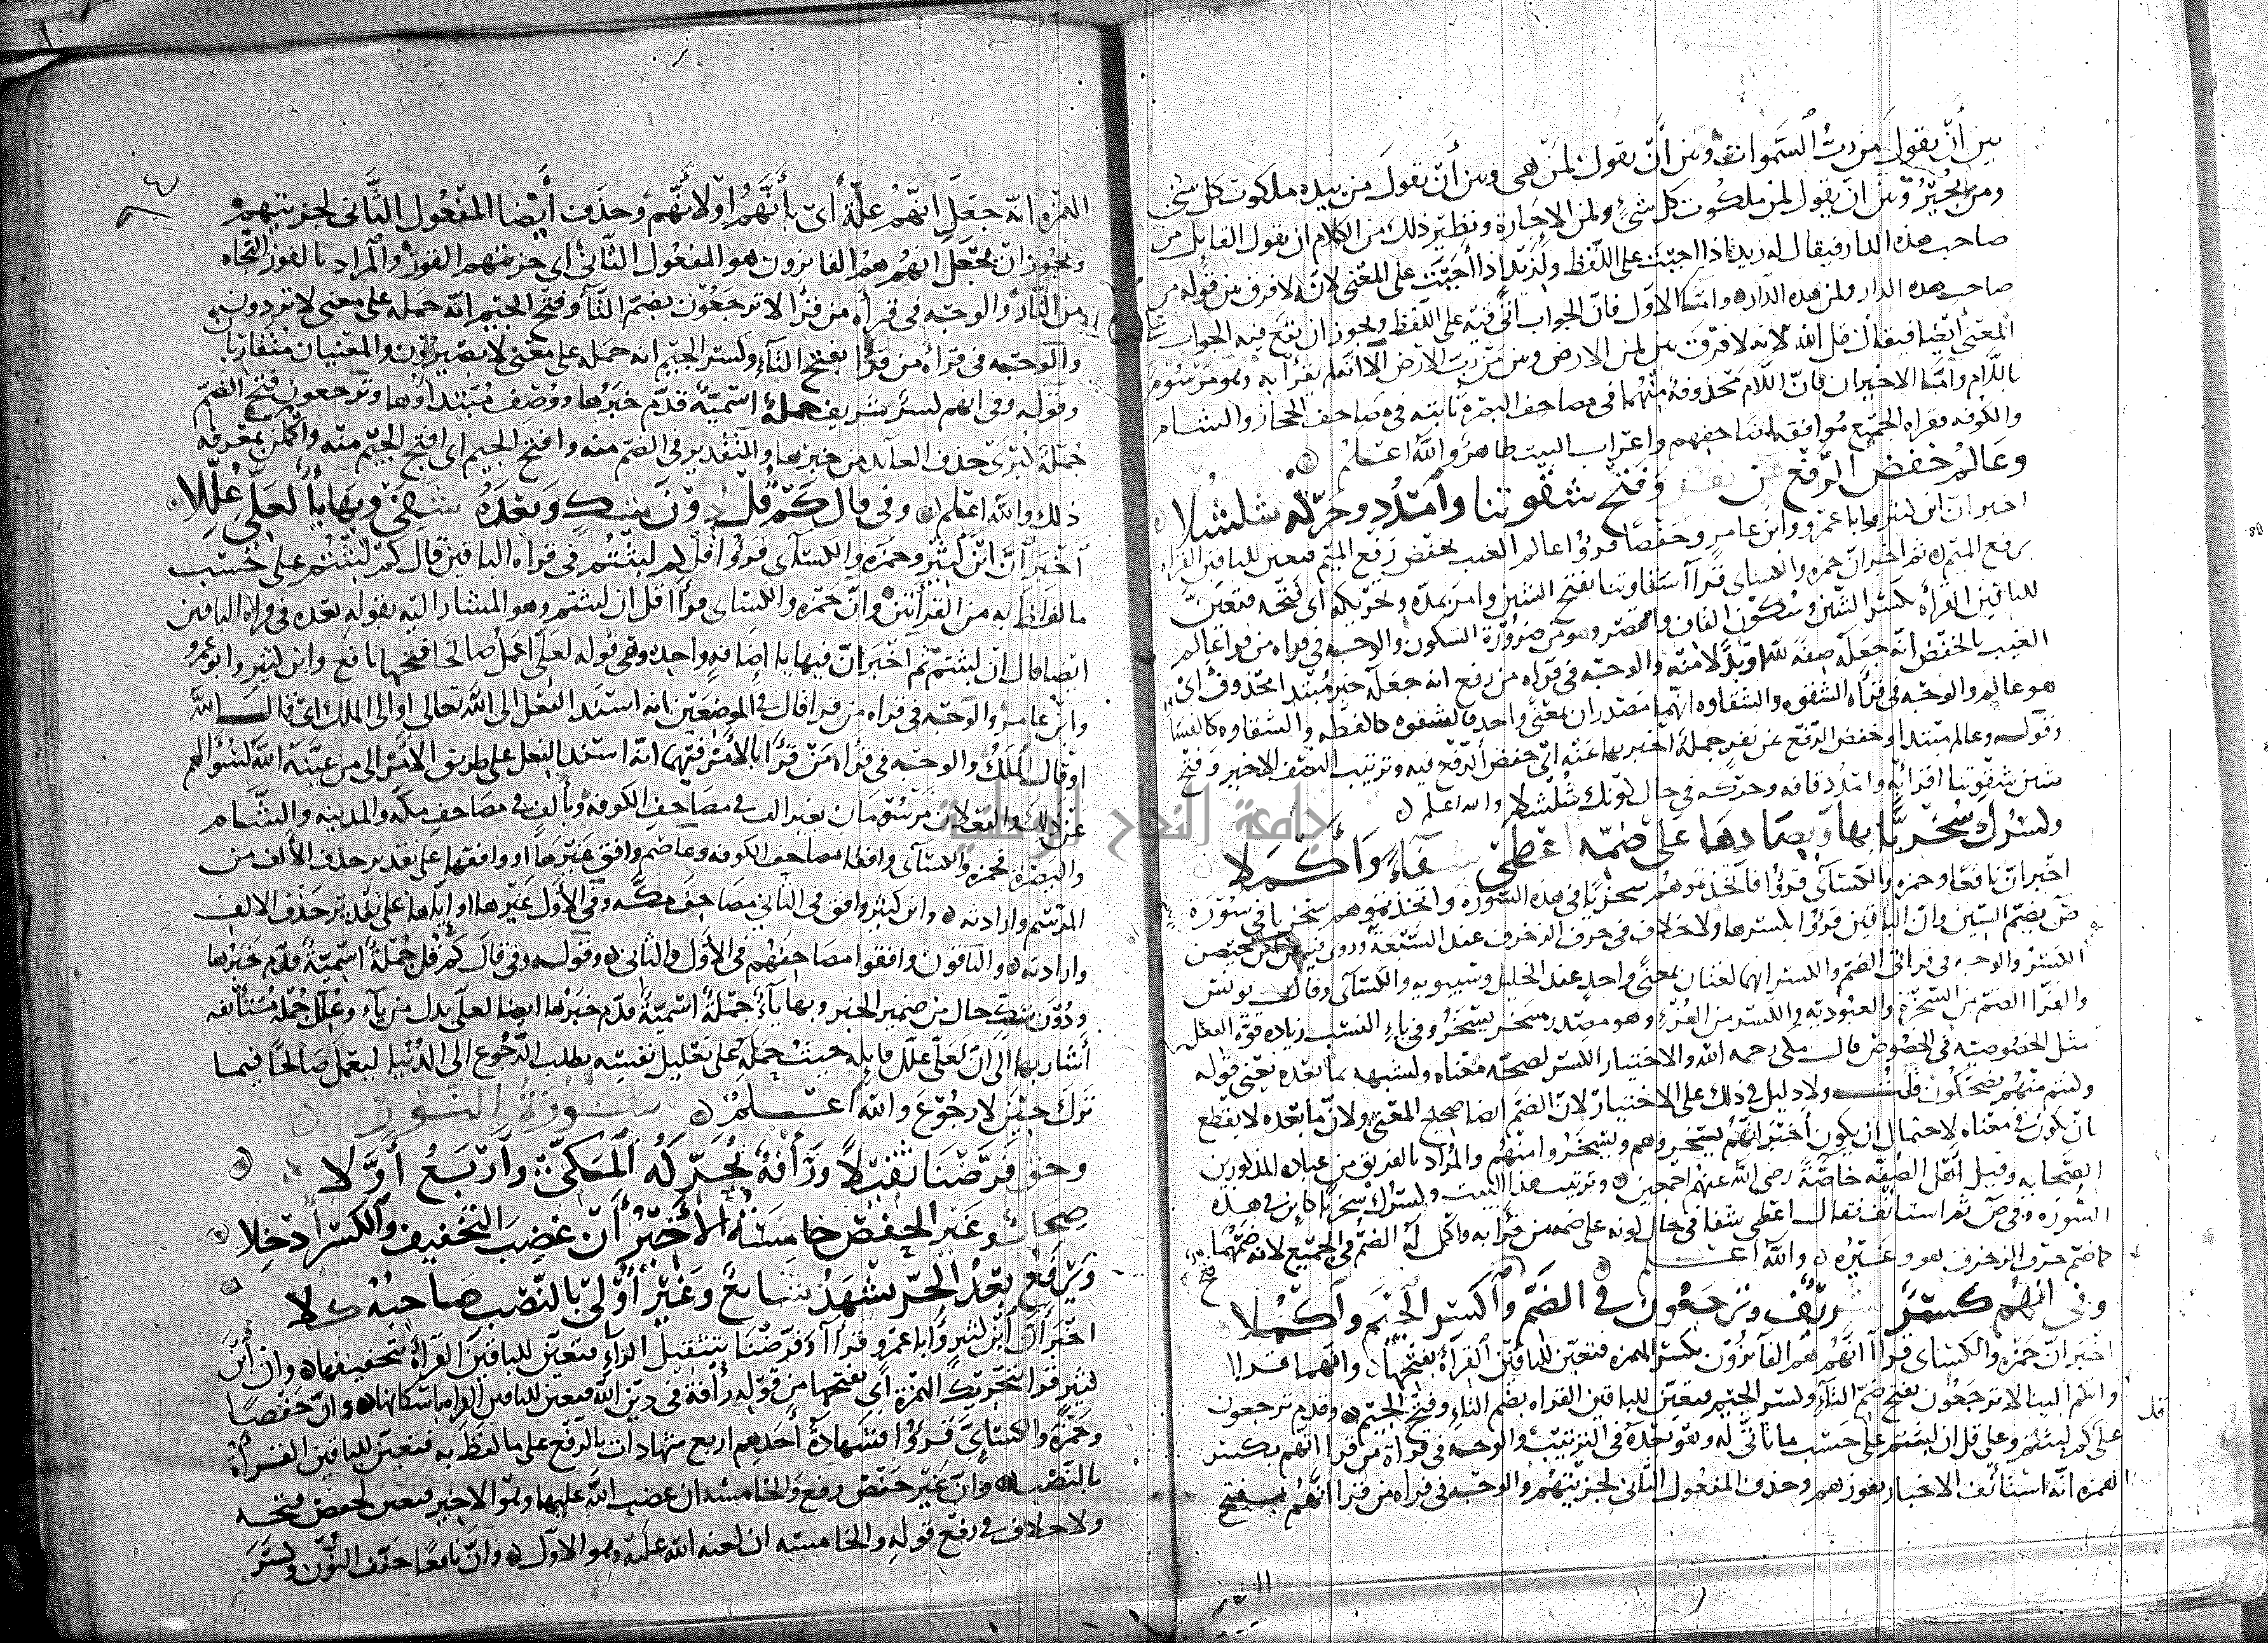 بين أن يقول من رب السموات وبين أن يقول لمن هي وبين أن يقول من بيده ملكوت كل شيء
ومن يجير وبين أن يقول لمن ملكوت كل شيء ولمن الإجارة ونظير ذلك من الكلام أن يقول القايل من
صاحب هذه الدار فيقال له زيد إذا أجبت على اللفظ ولزيد إذا أجبت على المعنى لأنه لا فرق بين قوله من
صاحب هذه الدار ولمن هذه الدار وأما الأول فإن الجواب أتى فيه على اللفظ ويجوز أن يقع فيه الجواب
المعنى أيضا فيقال قل الله لأنه لا فرق بين لمن الأرض وبين من رب الأرض إلا أنه لم يقرأ به وهو مرسوم
باللام وأما الأخيران فإن اللام محذوفة منهما في مصاحف البصرة ثابتة في مصاحف الحجاز والشام
والكوفة فقراه الجميع موافقة لمصاحفهم وإعراب البيت ظاهر والله أعلم
وعالم خفض الرفع عن نفر وفتح شقوتنا وامدد وحركه شلشلا
أخبر أن ابن كثير وأبا عمرو وابن عامر وحفصا قرؤا عالم الغيب بخفض رفع الميم فتعين للباقين القراه
برفع الميم ثم أخبر أن حمزه والكساى قرآ شقاوتنا بفتح الشين وامر بمده وتحريكه أي فتحه فتعين
للباقين القرأه بكسر الشين وسكون القاف والقصر وهو من ضرورة السكون والوجه في قراه من قرا عالم
الغيب بالخفض أنه جعله صفة لله أو بدلا منه والوجه في قراه من رفع انه جعله خبر مبتدا محذوف أي
هو عالم والوجه في قرأه الشقوه والشقاوه انهما مصدران بمعنى واحد فالشقوه كالفطنه والشقاوه كالقساوه
وقوله وعالم مبتدا وخفض الرفع عن نفر جملة اخبر بها عنه اي خفض الرفع فيه وترتيب النصف الاخير وفتح
شين شقوتنا اقرا به وامدد قافه وحركه في حال كونك شلشلا والله اعلم
وكسرك سخريا بها وبصادها على ضمه أعطى شفاء وأكملا
اخبر ان نافعا وحمزه والكسآئى قرؤا فاتخذتموهم سخريا في هذه السوره واتخذناهم سخريا في سورة
ص بضم السين وان الباقين قرؤا بكسرها ولا خلاف في حرف الزخرف عند السبعة وروى فيه
الكسر والوجه في قرائى الضم والكسر انهما لغتان بمعنى واحد عند الخليل وسيبويه والكسآئى وقال يونس
والفرا الضم من السخرة والعبودية والكسر من الهزء وهو مصدر سخر يسخر وفي ياء النسب زياده قوة الفعل
مثل الخصوصيه في الخصوص قال مكى رحمه الله والاختيار الكسر لصحة معناه ولشبهه بما بعده يعني قوله
وكنتم منهم تضحكون قلت ولا دليل في ذلك على الاختيار لان الضم ايضا صحيح المعنى ولان ما بعده لا يقطع
بان يكون في معناه لاحتمال ان يكون أخبر انهم يستخدموهم ويسخروا منهم والمراد بالفريق من عباده المذكورين
الصحابه وقيل أهل الصفة خاصة رضى الله عنهم اجمعين وترتيب هذا البيت وكسرك سخريا كاين في هذه
السوره وفي ص ثم استانف فقال اعطى شفا في حال كونه على ضمه من قرأ به واكمل له الضم في الجميع لانه ضمهما
كما ضم حرف الزخرف هو وغيره والله اعلم
وفي انهم كسر شريف وترجعون في الضم فتح واكسر الجيم واكملا
اخبر ان حمزه والكساى قرآ انهم هم الفآئزون بكسر الهمزه فتعين للباقين القرأه بفتحها وانهما قرآ
وانكم الينا لا ترجعون بفتح ضم التآء وكسر الجيم فتعين للباقين القراه بضم التاء وفتح الجيم وقدم ترجعون
على كم لبثتم وعلى قل ان لبثتم على حسب ما تاتى له وهو بعده في الترتيب والوجه في قرأة من قرا انهم بكسر
الهمزه انه استأنف الاخبار بفوزهم وحذف المفعول الثانى لجزيتهم والوجه في قراه من قرا انهم بفتح
الهمزه انه جعل انهم علة أى بأنهم او لانهم وحذف أيضا المفعول الثانى لجزيتهم
ويجوز ان يجعل انهم هم الفائزون هو المفعول الثانى اي جزيتهم الفوز والمراد بالفوز النجاه
من النار والوجه في قرأه من قرأ لا ترجعون بضم التآ وفتح الجيم انه حمله على معنى لا تردون
والوجه في قرأه من قرأ بفتح التآء وكسر الجيم انه حمله على معنى لا تصيرون والمعنيان متقاربان
وقوله وفي انهم كسر شريف جملة اسمية قدم خبرها ووصف مبتداؤها وترجعون فتح الضم
جملة كبرى حذف العآيد من خبرها والتقدير في الضم منه وافتح الجيم اى افتح الجيم منه واكملن بمعرفة
ذلك والله اعلم وفي قال كم قل دون شك وبعده شفى وبها ياء لعلى عللا
أخبر أن ابن كثير وحمزه والكسآى قرؤا قل كم لبثتم في قراه الباقين قال كم لبثتم على حسب
ما لفظ به من القرأتين وان حمزه والكساى قرآ قل ان لبثتم وهو المشار اليه بقوله بعده في قراه الباقين
ايضا قال ان لبثتم ثم اخبر ان فيها يا اضافة واحده وهى قوله لعلى أعمل صالحا فتحها نافع وابن كثير وابو عمرو
وابن عامر والوجه في قراه من قرا قال في الموضعين انه اسند الفعل الى الله تعالى او الى الملك اى قال الله
او قال الملك والوجه في قراه من قرأ بالامر فيهما انه اسند الفعل على طريق الامر الى من عينه الله لسؤالهم
عن ذلك والفعلان مرسومان بغير الف في مصاحف الكوفة وبألف في مصاحف مكة والمدينه والشام
والبصرة فحمزه والكسآى وافقا مصاحف الكوفه وعاصم وافق غيرها او وافقها على تقدير حذف الألف من
الرسم وارادته وابن كثير وافق في الثاني مصاحف مكه وفي الأول غيرها او اياها على تقدير حذف الالف
وارادته والباقون وافقوا مصاحفهم في الأول والثانى وقوله وفي قال كم قل جملة اسمية قدم خبرها
ودون شك حال من ضمير الخبر وبها ياء جملة اسمية قدم خبرها ايضا لعلى بدل من ياء وعلل جملة مستأنفه
أشار بها الى ان لعلى علل قايله حيث حمله على تعليل نفسه بطلب الرجوع الى الدنيا ليعمل صالحا فيما
ترك حين لا رجوع والله اعلم سورة النور
وحق فرضنا ثقيلا ورأفة يحركه المكى واربع أولا
صحاب وغير الحفص خامسة الأخير أن غضب التخفيف والكسر أدخلا
ويرفع بعد الجر يشهد شائع وغير أولى بالنصب صاحبه كلا
اخبر أن ابن كثير وأبا عمرو قرآ وفرضنا بتثقيل الرآء فتعين للباقين القرأة بتخفيفها وان ابن
كثير قرا بتحريك الهمزة أي بفتحها من قوله رأفة في دين الله فتعين للباقين القراه باسكانها وان حفصا
وحمزة والكسآى قرؤا فشهادة أحدهم اربع شهادات بالرفع على ما لفظ به فتعين للباقين القرأة
بالنصب وان غير حفص رفع والخامسه ان غضب الله عليها وهو الاخير فتعين لحفص فتحه
ولا خلاف في رفع قوله والخامسه ان لعنه الله عليه وهو الاول وان نافعا خفف النون وكسر
قل
جامعة النجاح الوطنية